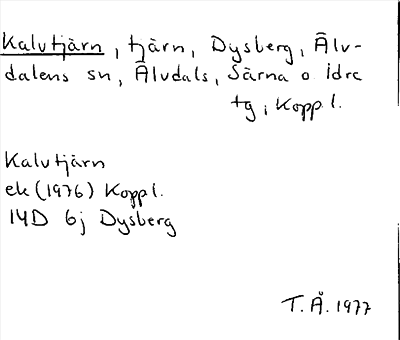 Kalvtjärn, tjärn, Dysberg, Älv-
dalens sn, Älvdals, Särna o Idre
tg, Koppl.
Kalvtjärn
ek (1976) Koppl.
14D 6j Dysberg
T.Å. 1977